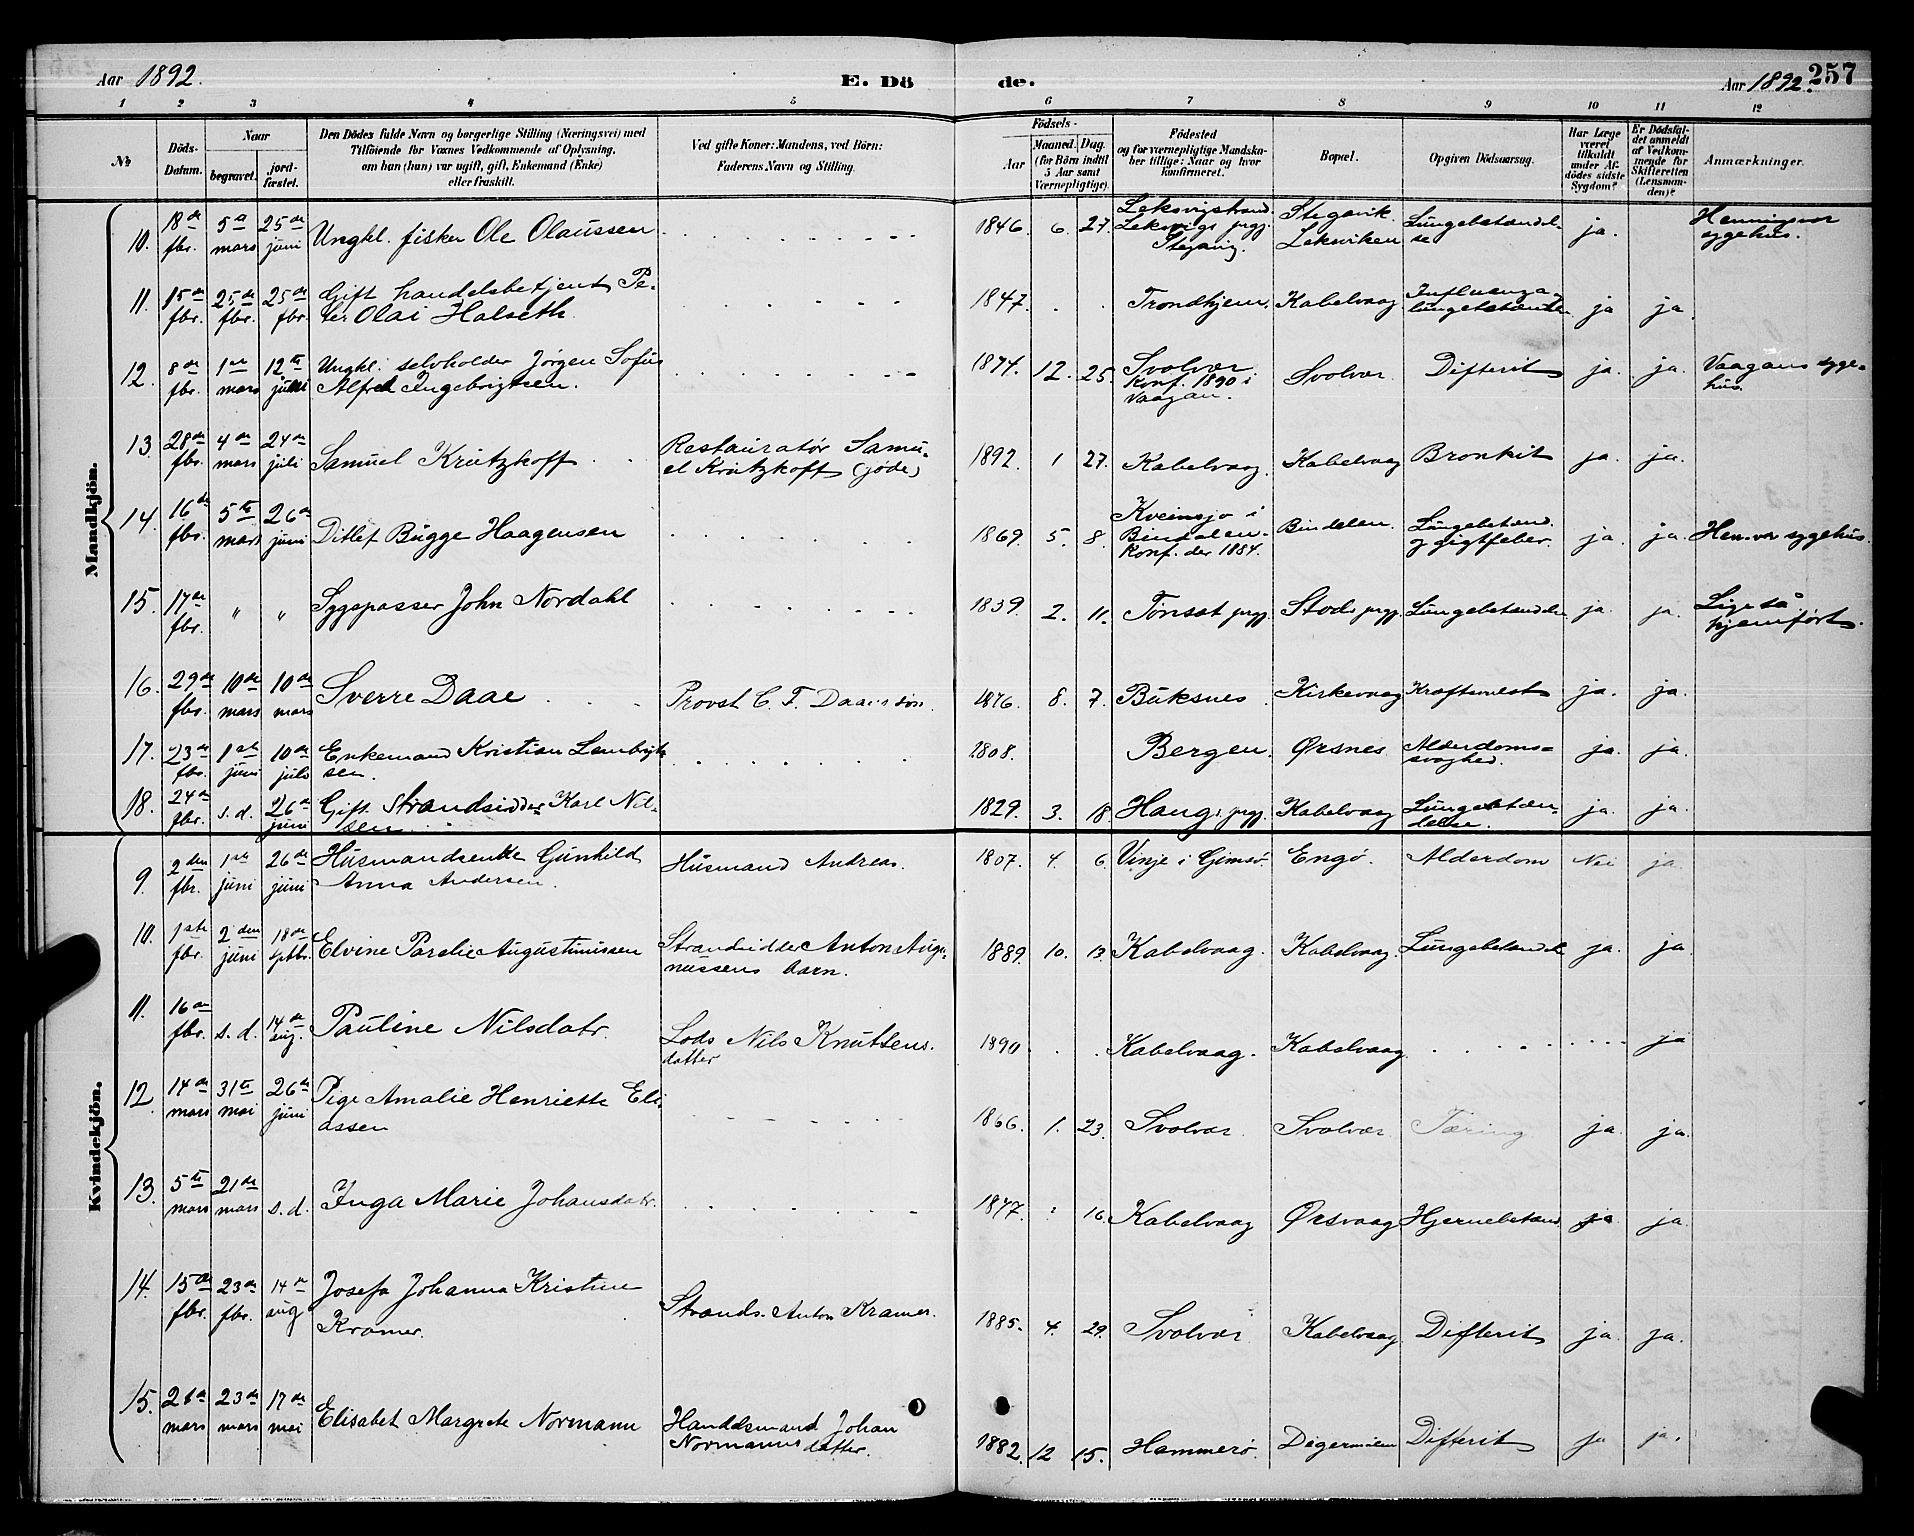 Aar 1892.
E. Dö
de.
Aar 1892.
257
1 2 3 4 5 6 7 8 9 10 11 12
No
Döds-Datum.
Naar
begravet.
jord-fæstet.
Den Dödes fulde Navn og borgerlige Stilling (Næringsvei) med
Tilföiende for Voxnes Vedkommende af Oplysning,
om han (hun) var ugift, gift, Enkemand (Enke)
eller fraskilt.
Ved gifte Koner: Mandens, ved Börn:
Faderens Navn og Stilling.
Födsels-
Aar
Maaned. Dag.
(for Börn indtil
5 Aar samt
Værnepligtige).
Födested
og for værnepligtige Mandska-
ber tillige: Naar og hvor
konfirmeret.
Bopæl.
Opgiven Dödsaarsag.
Har Læge
været
tilkaldt
under Af-
dödes sidste
Sygdom?
Er Dödsfal-
det anmeldt
af Vedkom-
mende for
Skifteretten
(Lensman-
den)?
Anmærkninger.
Mandkjön.
10. 18de fbr. 5te mars 25de juni Ungkl. fisker Ole Olaussen 1846. 6. 27. Leksvigstrand Leksvigs prgj. Stegavik Leksviken Lungebetændel-se ja. Henningsvær sygehus.
11. 15de fbr. 25de fbr. 25de fbr. Gift handelsbetjent Pe-
ter Olai Halseth. 1847. Trondhjem. Kabelvaag Influenza- lungebetændel ja ja
12. 8de fbr. 1ste mars 12te juni Ungkl. selvholder Jørgen Sofus
Alfred Ingebrigtsen. 1874. 12. 25. Svolvær Konf. 1890 i Vaagan. Svolvær. Difterit ja. ja. Vaagans syge-
hus.
13. 28de fbr. 4de mars 24de juli Samuel Krutzkoff Restauratør Samu-
el Krutzkoff (jøde) 1892. 1 27. Kabelvaag. Kabelvaag Bronkit ja. ja.
14. 16de fbr. 5te mars 26de juni Ditlef Bugge Haagensen 1869. 5. 8. Kveinsjo i Bindalen. Konf. der 1884. Bindalen. Lungebetænd. og gigtfeber. ja. ja. Hen.vær sygehus.
15. 17de fbr. " " Sygepasser John Nordahl 1839. 2. 11. Tønset prgj. Stods prgj. Lungebetændel ja. ja. Ligeså
hjemført.
16. 29de fbr. 10de mars 10de mars Sverre Daae Provst C. F. Daaes søn. 1876. 8. 7. Buksnes Kirkevaag Kræftsvulst ja. ja.
17. 23de fbr. 1ste juni 10de juli Enkemand Kristian Lembrigt-
sen. 1808. Bergen. Ørsnes Alderdoms-
svaghed. ja. ja.
18. 24de fbr. s. d. 26de juni Gift Strandsidder Karl Nil-
sen 1829. 3. 18. Haugs prgj. Kabelvaag Lungebetæn-
delse. ja. ja.
Kvindekjön.
9. 2den fbr. 1ste juni 26de juni Husmandsenke Gunhild
Anna Andersen. Husmand Andreas. 1807. 4. 6. Vinje i Gimsø. Engø. Alderdom Nei ja.
10. 1ste fbr. 2den juni 18de sptbr. Elvine Parelie Augustinussen Strandsidder Anton Augu-
nussens barn. 1889. 10. 13. Kabelvaag. Kabelvaag. Lungebetændel ja. ja
11. 16de fbr. s. d. 14de aug. Pauline Nilsdatr. Lods Nils Knutsens.
datter 1890 Kabelvaag. Kabelvaag ja
12. 14de mars 31te mai 26de juni Pige Amalie Henriette Eli-
assen 1866. 1. 23. Svolvær. Svolvær. Tæring ja. ja.
13. 5te mars 21de mars s. d. Inga Marie Johansdatr. 1877. 16. Kabelvaag Ørsvaag Hjernebetænd. ja ja.
14. 15de fbr. 23de fbr. 14de aug Josefa Johanna Kristine
Kramer. Strands. Anton Kramer. 1885. 4. 29. Svolvær. Kabelvaag Difterit ja. ja.
15. 21de mars 23de mars 17de mai Elisabet Margrete Normann Handelsmand Johan
Normanns datter. 1882. 12 15. Hammerø. Digermulen Difterit ja ja.